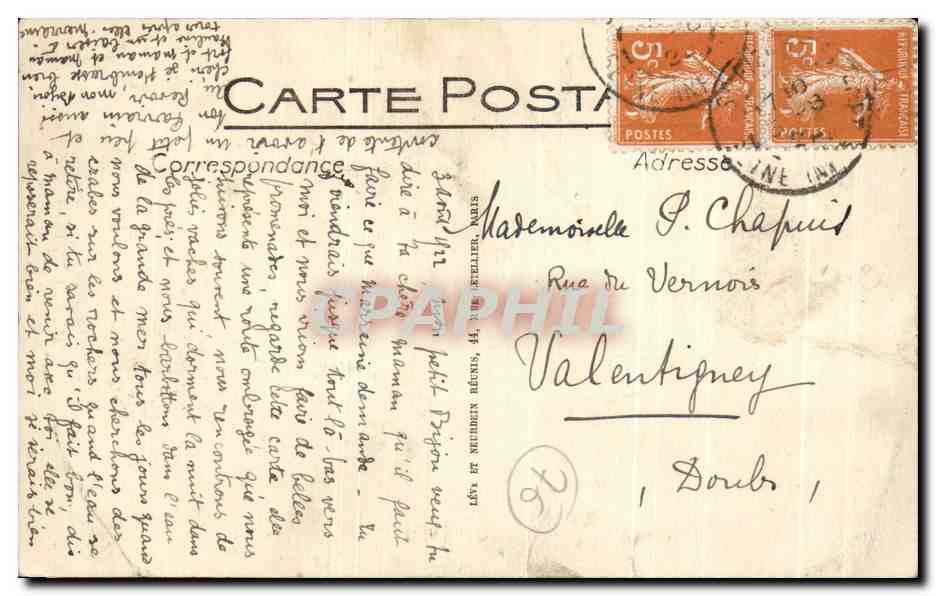 CARTE POSTA
Correspondance
Adresse
RÉPUBLIQUE FRANÇAISE
5c
POSTES
RÉPUBLIQUE FRANÇAISE
5c
POSTES
Mademoiselle P. Chapuis
Rue du Vernois
Valentigney
Doubs
76
LEVY & NEURDEIN RÉUNIS, 44, LETELLIER, PARIS
CPAPHIL
3 Août 1922 mon petit Bijou veux-tu
dire à ta chère maman qu'il faut
faire ce que Marraine demande. Tu
viendrais jusque tout là-bas vers
moi et nous irions faire de belles
promenades, regarde cette carte elle
représente une route ombragée que nous
suivons souvent, nous rencontrons de
jolies vaches qui dorment la nuit dans
les prés et nous barbottons dans l'eau
de la grande mer tous les jours quand
nous voulons et nous cherchons des
crabes sur les rochers quand l'eau se
retire, si tu savais qu'il fait bon, dis
à maman de venir avec toi elle se
reposerait bien et moi je serais bien
contente de t'avoir un petit peu
ton Parrain aussi et
au Revoir, mon Bijou
chéri je t'embrasse bien
fort et maman et maman
Pauline et un baiser à
tous après elles. Marraine